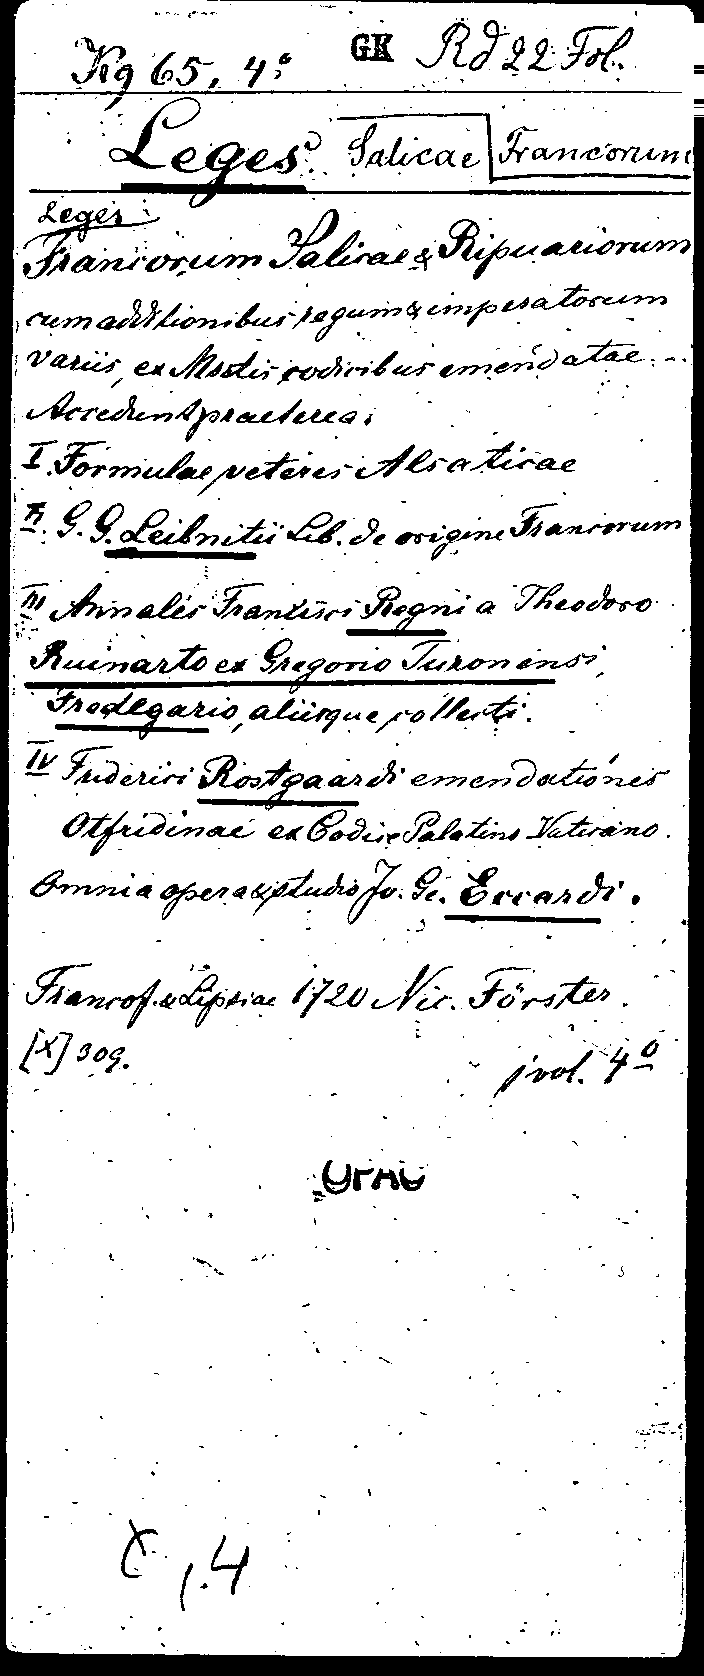 Kg 65, 4° GK Rd 22 Fol.
Leges Salicae Francorum
Leges
Francorum Salicae & Ripuariorum
cum additionibus regum & imperatorum
variis, ex Msstis codicibus emendatae...
Accedunt praeterea:
I. Formulae veteres Alsaticae
II. G. G. Leibnitii Lib. de origine Francorum
III Annales Francisci Regni a Theodoro
Ruinarto ex Gregorio Turonensi,
Fredegario, aliisque collecti.
IV Friderici Rostgaardi emendationes
Otfridinae ex Codice Palatino Vaticano.
Omnia opera & studio Jo. Ge. Eccardi.
Francof. & Lipsiae 1720 Nic. Förster.
[X] 309.
1 vol. 4°